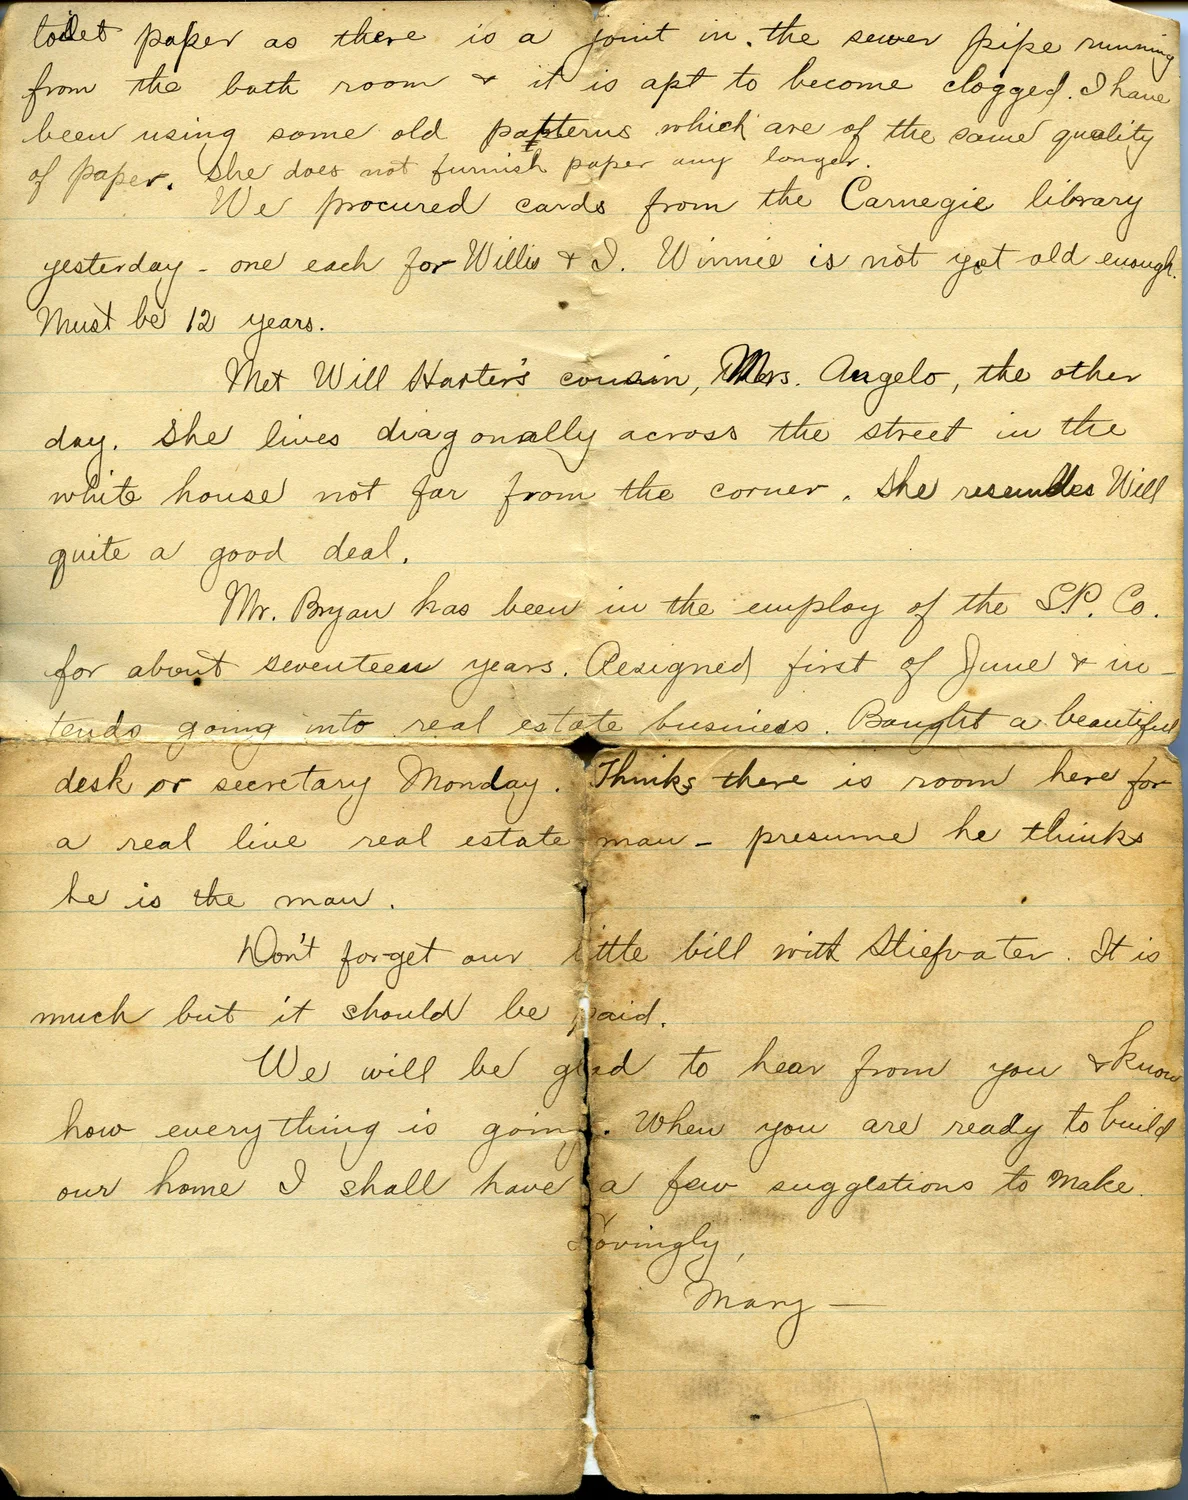 toilet paper as there is a joint in the sewer pipe running
from the bath room & it is apt to become clogged. I have
been using some old patterns which are of the same quality
of paper. She does not furnish paper any longer.
We procured cards from the Carnegie library
yesterday - one each for Willis & I. Winnie is not yet old enough.
Must be 12 years.
Met Will Harter's cousin, Mrs. Angelo, the other
day. She lives diagonally across the street in the
white house not far from the corner. She resembles Will
quite a good deal.
Mr. Bryan has been in the employ of the S.P. Co.
for about seventeen years. Resigned first of June & in-
tends going into real estate business. Bought a beautiful
desk or secretary Monday. Thinks there is room here for
a real live real estate man - presume he thinks
he is the man.
Don't forget our little bill with Stiefvater. It is
much but it should be paid.
We will be glad to hear from you & know
how everything is going. When you are ready to build
our home I shall have a few suggestions to make.
Lovingly,
Mary -